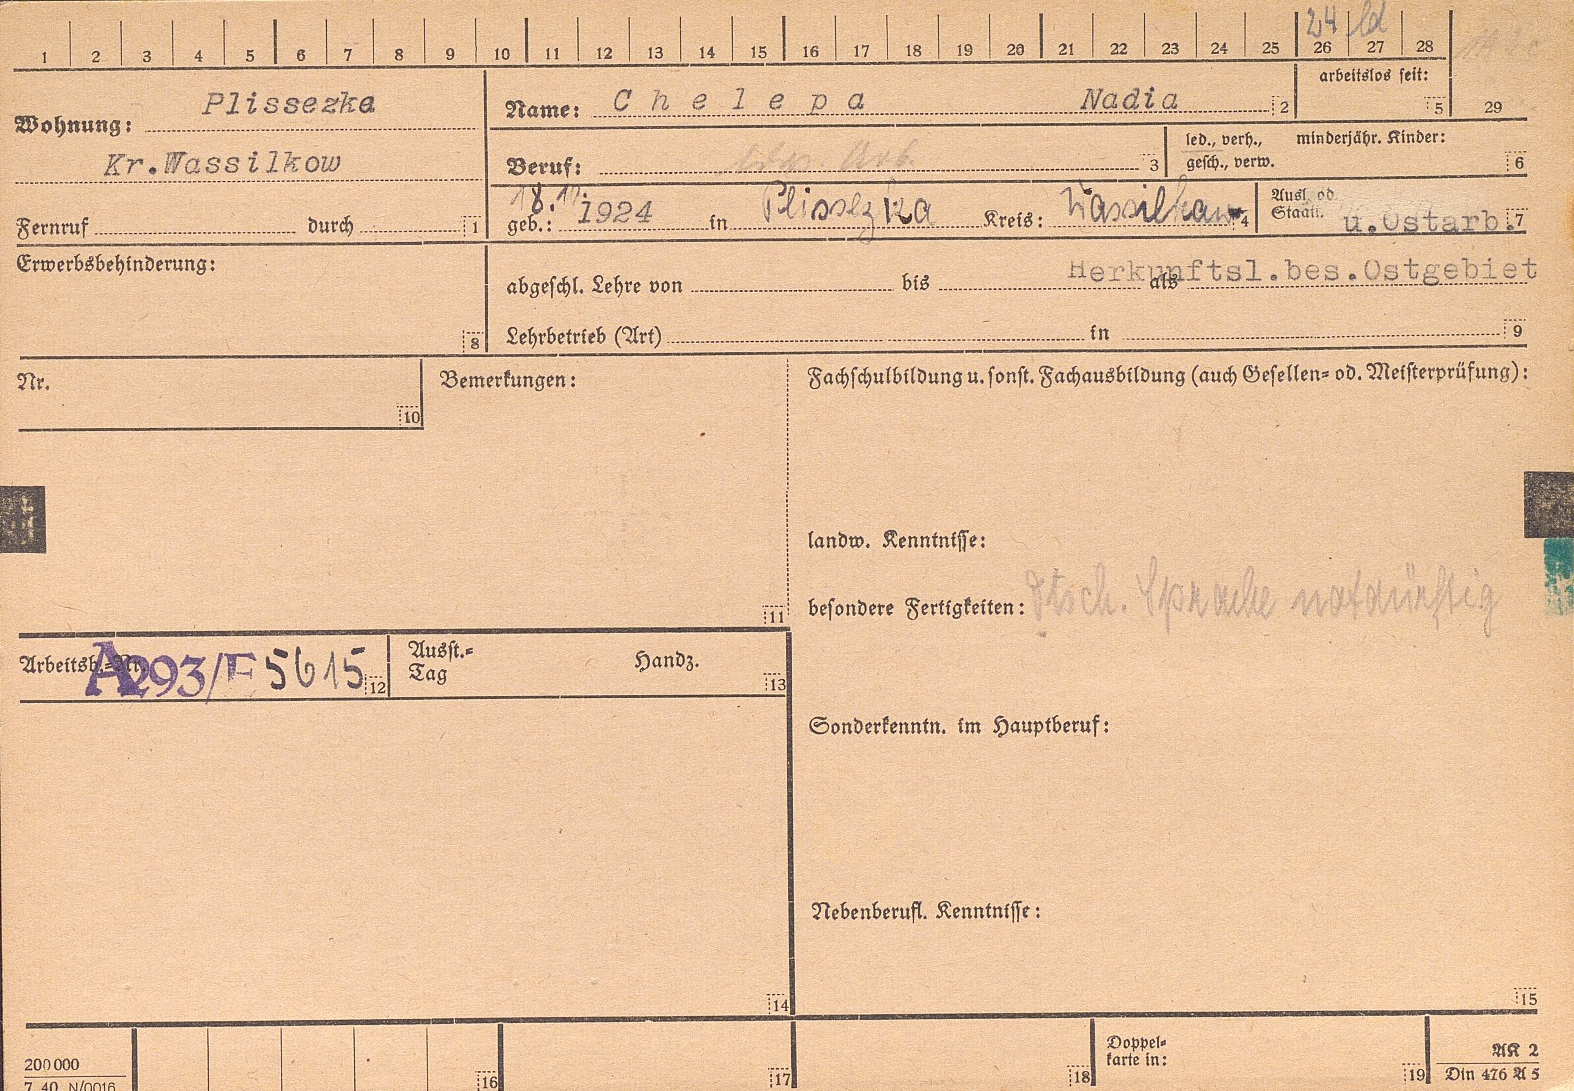 24 ld
1 2 3 4 5 6 7 8 9 10 11 12 13 14 15 16 17 18 19 20 21 22 23 24 25 26 27 28
Wohnung: Plissezka
Kr.Wassilkow
Fernruf durch 1
Name: Chelepa Nadia 2
arbeitslos seit: 5
29
Beruf: Arb. 3
led., verh., gesch., verw.
minderjähr. Kinder: 6
geb.: 18. 1924 in Plissezka Kreis: Wassilkow 4
Ausl. od. Staatl. u.Ostarb. 7
Herkunftsl.bes.Ostgebiet
Erwerbsbehinderung: 8
abgeschl. Lehre von bis als
Lehrbetrieb (Art) in 9
Nr. 10
Bemerkungen: 11
Fachschulbildung u. sonst. Fachausbildung (auch Gesellen= od. Meisterprüfung):
landw. Kenntnisse:
besondere Fertigkeiten: dtsch. Sprache notdürftig
Arbeitsb.=Nr. A293/E 5615 12
Ausst.= Tag Handz. 13
Sonderkenntn. im Hauptberuf:
Nebenberufl. Kenntnisse:
14
15
200 000
7. 40. N/0016
16
17
18
Doppel= karte in: 19
AK 2
Din 476 A 5